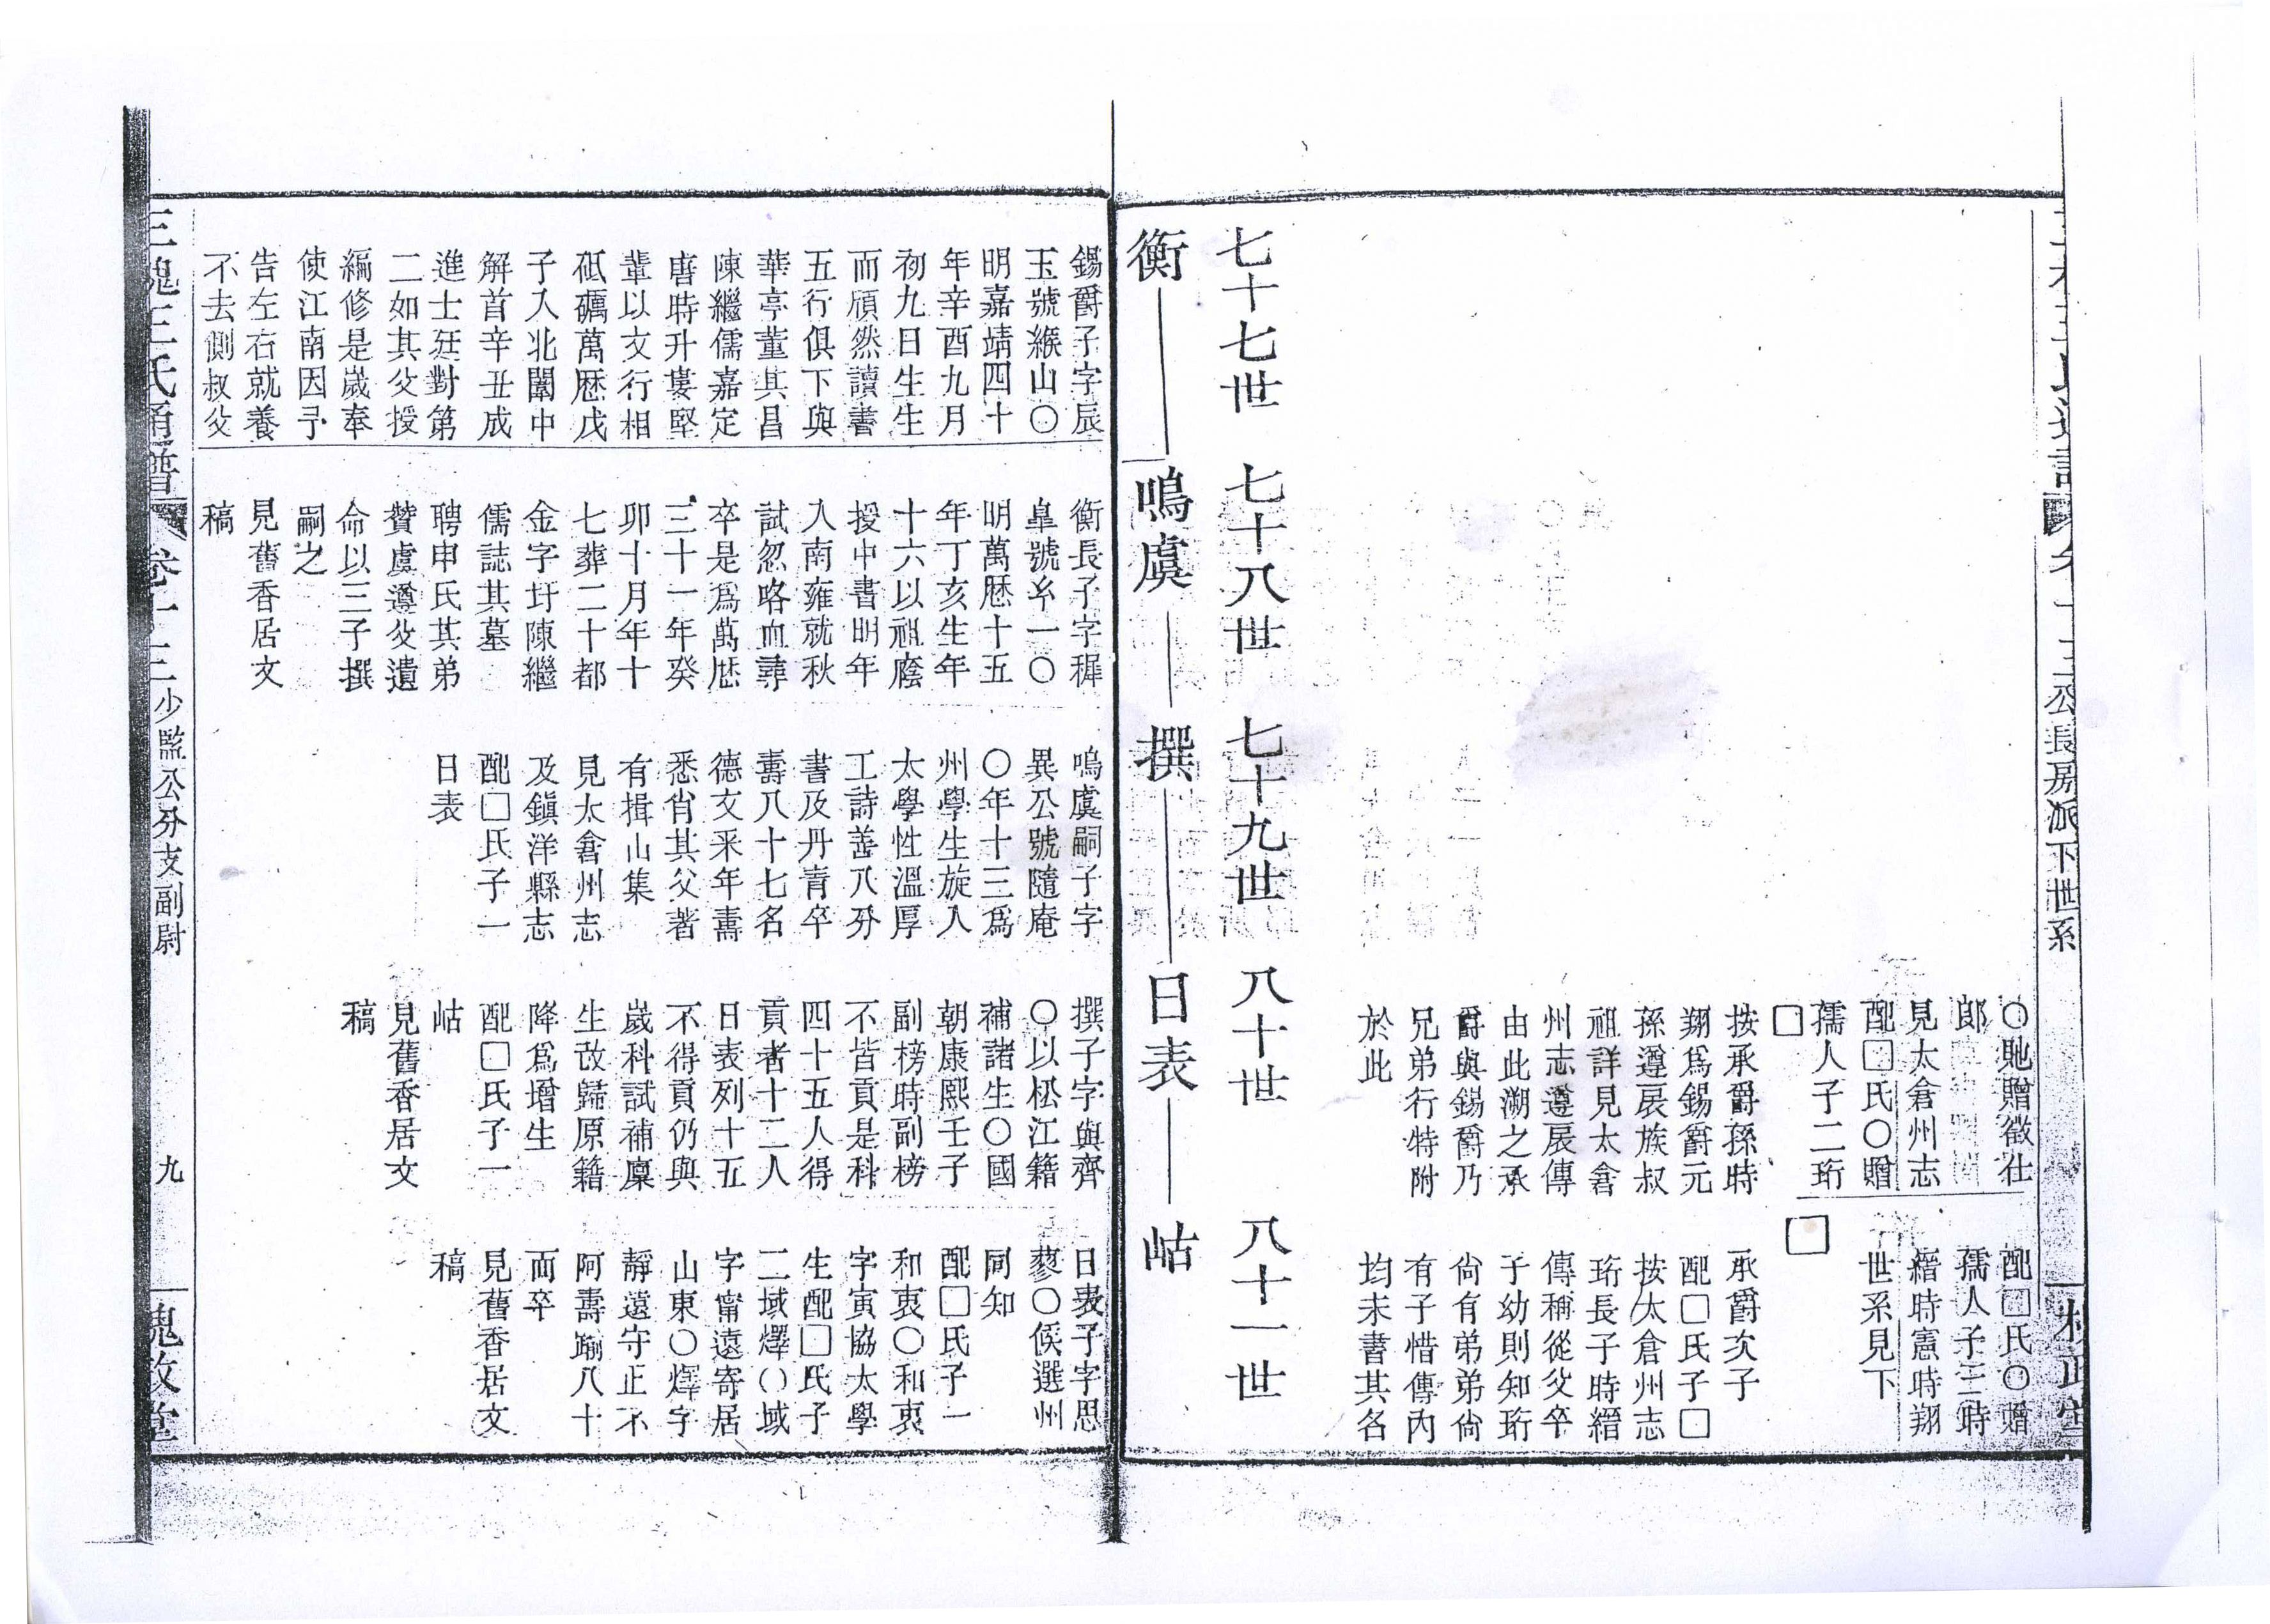 公長房派下世系
○貤贈徵仕
郎
見太倉州志
配□氏○贈
孺人子二珩
□
按承爵孫時
翔爲錫爵元
孫遵扆族叔
祖詳見太倉
州志遵扆傳
由此溯之承
爵與錫爵乃
兄弟行特附
於此
配□氏○贈
孺人子三時
縉時憲時翔
世系見下
□
承爵次子
配□氏子□
按太倉州志
珩長子時縉
傳稱從父卒
子幼則知珩
尙有弟弟尙
有子惜傳內
均未書其名
七十七世 七十八世 七十九世 八十世 八十一世
衡 鳴虞 撰 日表 岵
錫爵子字辰
玉號緱山○
明嘉靖四十
年辛酉九月
初九日生生
而頎然讀書
五行俱下與
華亭董其昌
陳繼儒嘉定
唐時升婁堅
輩以文行相
砥礪萬歷戊
子入北闈中
解首辛丑成
進士廷對第
二如其父授
編修是歲奉
使江南因予
告左右就養
不去側叔父
衡長子字穉
臯號幺一○
明萬歷十五
年丁亥生年
十六以祖廕
授中書明年
入南雍就秋
試忽咯血尋
卒是爲萬歷
三十一年癸
卯十月年十
七葬二十都
金字圩陳繼
儒誌其墓
聘申氏其弟
贊虞遵父遺
命以三子撰
嗣之
見舊香居文
稿
鳴虞嗣子字
異公號隨庵
○年十三爲
州學生旋入
太學性溫厚
工詩善八分
書及丹青卒
壽八十七名
德文采年壽
悉肖其父著
有揖山集
見太倉州志
及鎭洋縣志
配□氏子一
日表
撰子字與齊
○以松江籍
補諸生○國
朝康熙壬子
副榜時副榜
不皆貢是科
四十五人得
貢者十二人
日表列十五
不得貢仍與
歲科試補廩
生改歸原籍
降爲增生
配□氏子一
岵
見舊香居文
稿
日表子字思
蓼○候選州
同知
配□氏子一
和衷○和衷
字寅協太學
生配□氏子
二域燡○域
字甯遠寄居
山東○燡字
靜遠守正不
阿壽踰八十
而卒
見舊香居文
稿
三槐王氏通譜 卷十三 少監公分支副尉 九 槐政堂